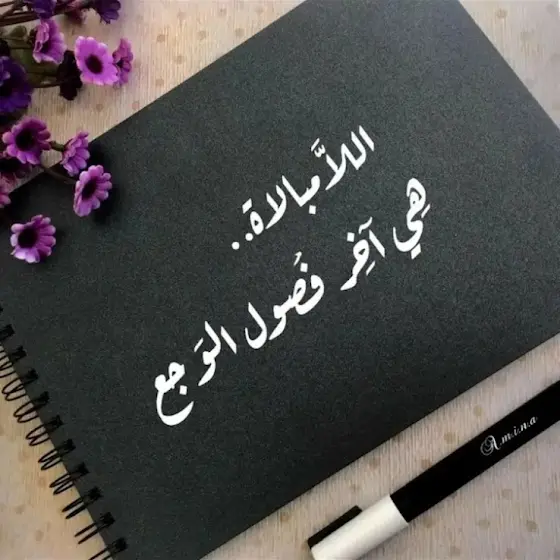 اللاَّمبالاة..
هِي آخِر فُصول الوَجع
A.m.i.n.a